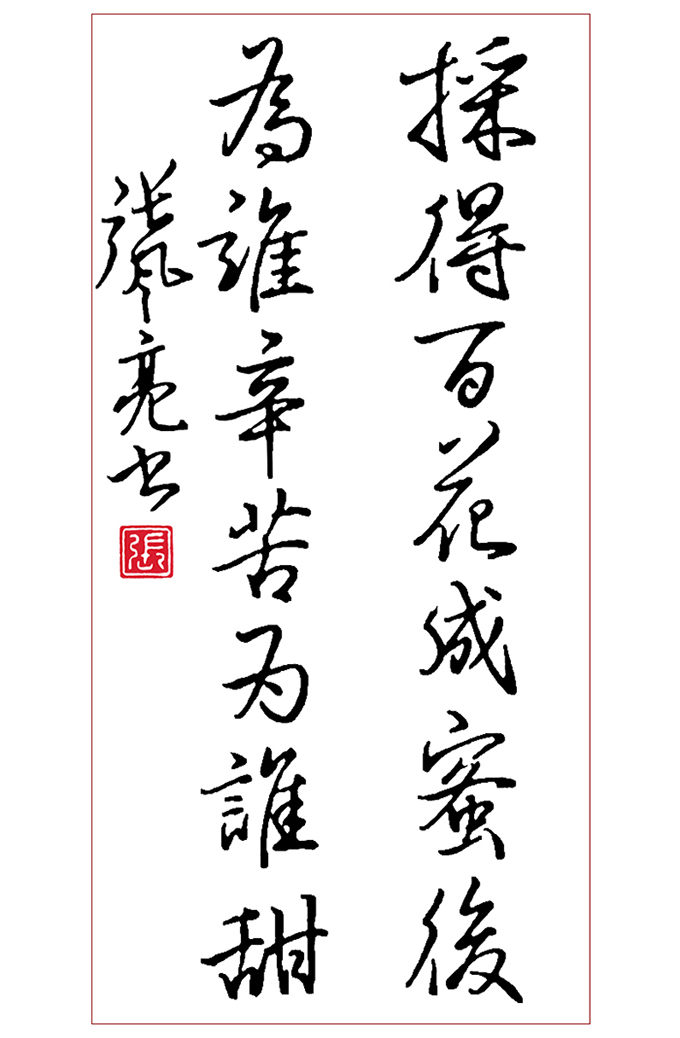 採得百花成蜜後
為誰辛苦为誰甜
張風亮书
張